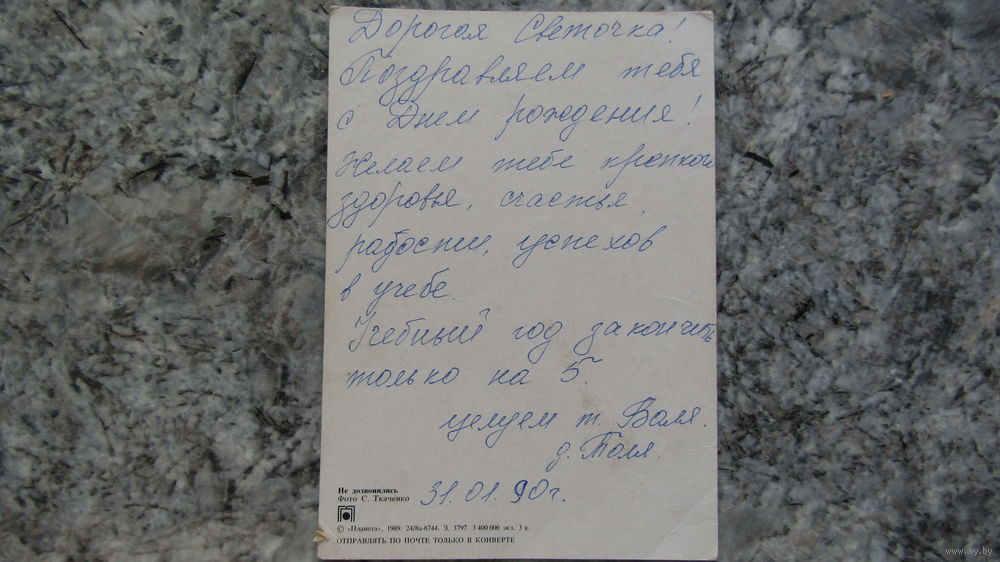 Дорогая Светочка!
Поздравляем тебя
с Днем рождения!
Желаем тебе крепкого
здоровья, счастья,
радости, успехов
в учебе.
Учебный год закончить
только на 5.
целуем т. Валя.
д. Толя.
31.01.90г.
Не дозвонились
Фото С. Ткаченко
© «Планета», 1989. 24/8а-8744. З. 3797. 3 400 000 экз. 3 к.
ОТПРАВЛЯТЬ ПО ПОЧТЕ ТОЛЬКО В КОНВЕРТЕ
www.ay.by